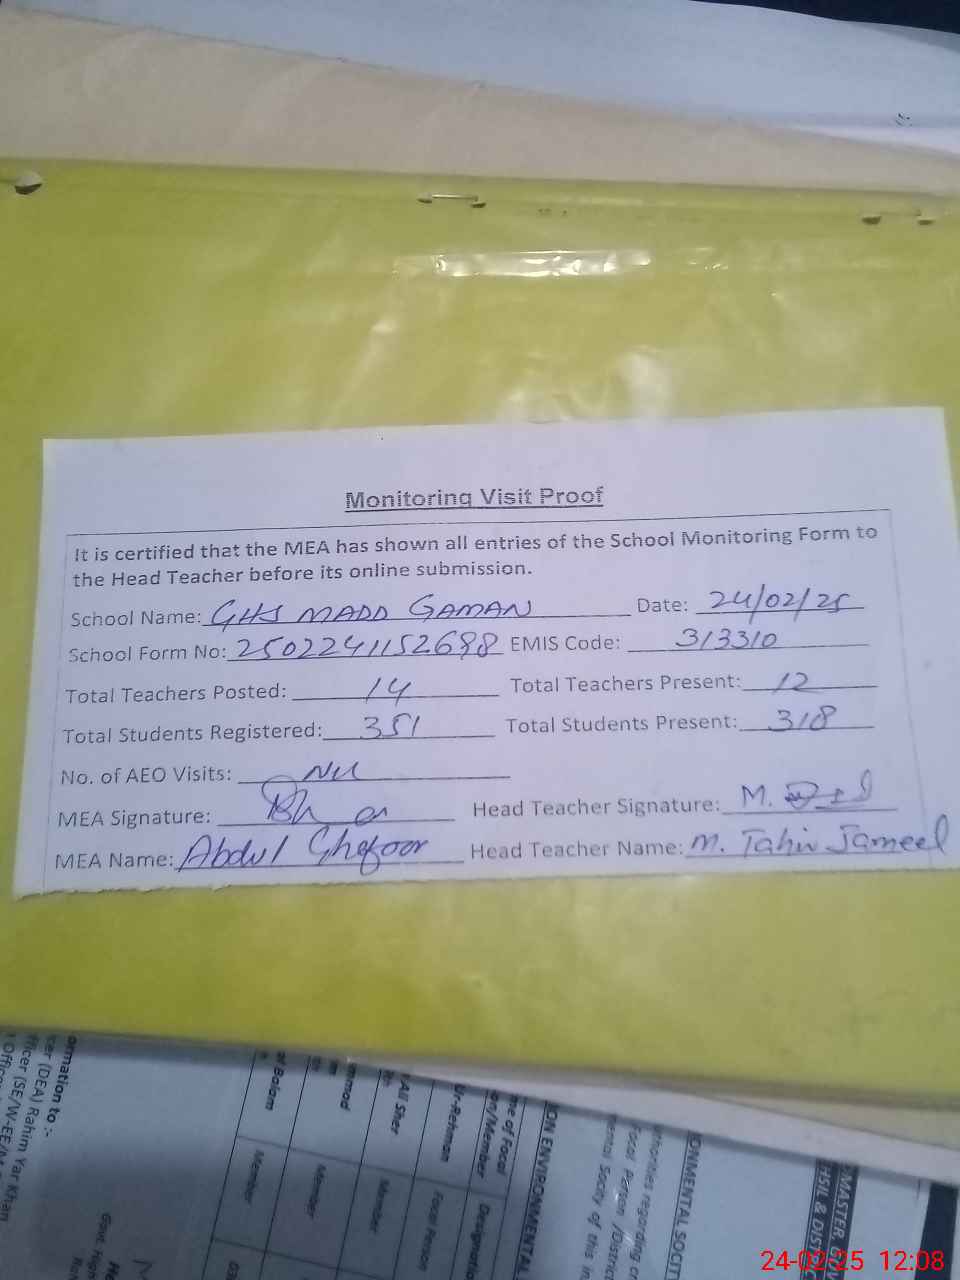 Monitoring Visit Proof
It is certified that the MEA has shown all entries of the School Monitoring Form to
the Head Teacher before its online submission.
School Name: GHS MADD GAMAN Date: 24/02/25
School Form No: 2502241152698 EMIS Code: 313310
Total Teachers Posted: 14 Total Teachers Present: 12
Total Students Registered: 351 Total Students Present: 318
No. of AEO Visits: Nil
MEA Signature: Head Teacher Signature: M.
MEA Name: Abdul Ghafoor Head Teacher Name: M. Tahir Jameel
ormation to :-
cer (DEA) Rahim Yar Khan
ficer (SE/W-EE/M
of Balam
Member
Member
Ali Sher
Member
Ur-Rehman
Focal Person
me of Focal
on/Member
Designation
ION ENVIRONMENTAL
Focal Person /District
mental Socity of this in
ONMENTAL SOCITI
24-02-25 12:08